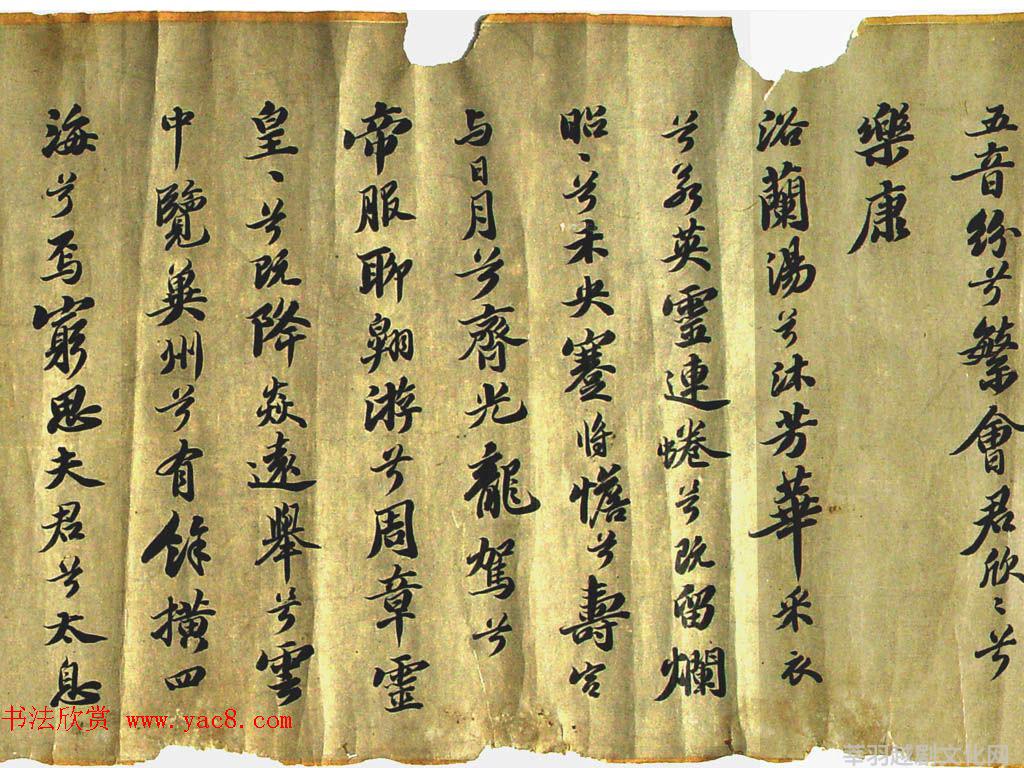 五音紛兮繁會君欣〻兮
樂康
浴蘭湯兮沐芳華采衣
兮若英靈連蜷兮既留爛
昭〻兮未央蹇將憺兮壽宮
与日月兮齊光龍駕兮
帝服聊翱游兮周章靈
皇〻兮既降焱遠舉兮雲
中覽兾州兮有餘撗四
海兮焉窮思夫君兮太息
书法欣赏 www.yac8.com
莘羽越剧文化网